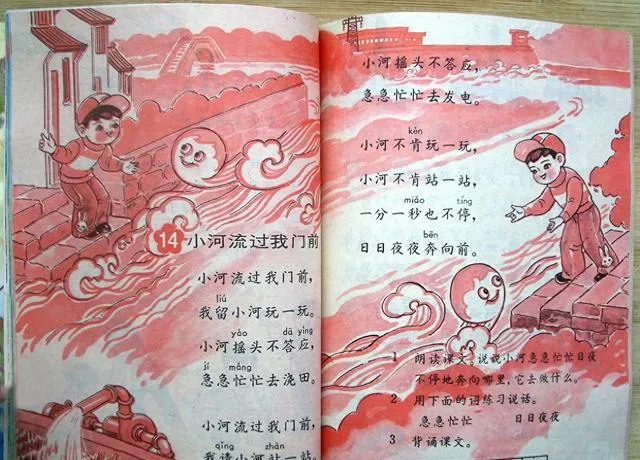 14 小河流过我门前
小河流过我门前，
liú
我留小河玩一玩。
yáo dā yìng
小河摇头不答应，
jí máng
急急忙忙去浇田。
小河流过我门前，
qǐng zhàn
我请小河站一站。
小河摇头不答应，
急急忙忙去发电。
kěn
小河不肯玩一玩，
小河不肯站一站，
miǎo tíng
一分一秒也不停，
bēn
日日夜夜奔向前。
1 朗读课文。说说小河急急忙忙日夜
不停地奔向哪里，它去做什么。
2 用下面的词练习说话。
急急忙忙 日日夜夜
3 背诵课文。